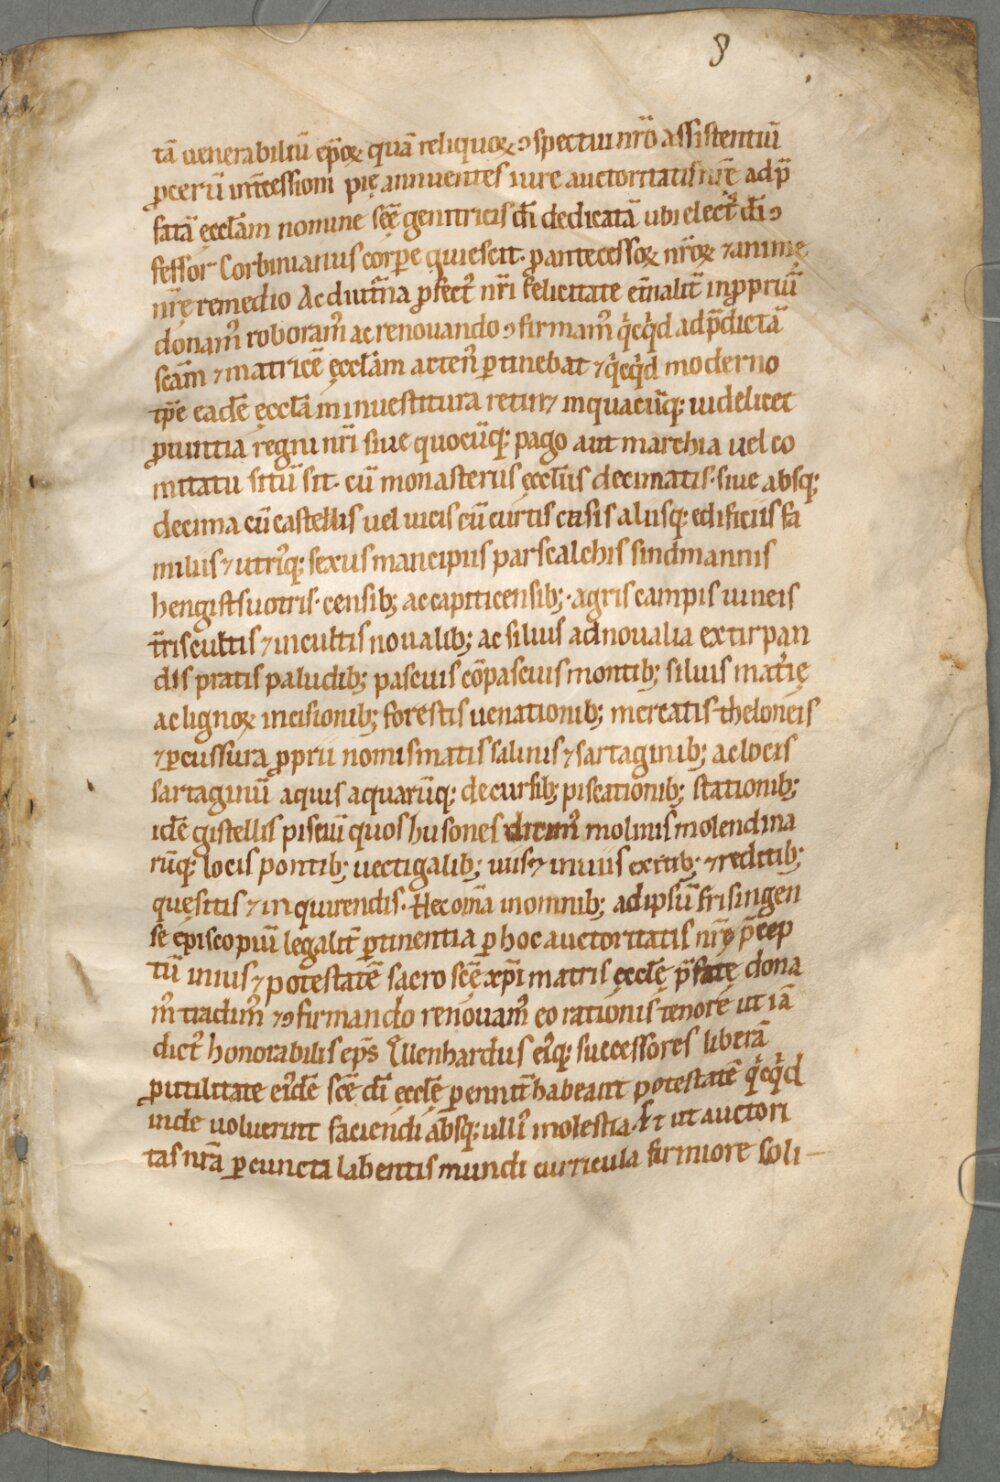 8
tā uenerabiliū ep̄oꝝ quā reliquoꝝ ↄspectui nr̄o assistentiū
ꝓcerū int̄cessioni pię annuentes iure auctoritatis nr̄ę ad p̄
fatā ęccl̄am nomine scę̄ genitricis dī dedicatā ubi elect᷒ dī ↄ
fessor Corbinianus corꝑe quiescit· ꝓ antecessoꝝ nr̄oꝝ ⁊ animę
nr̄ę remedio Ac diut̄na ꝓfect᷒ nr̄i felicitate et̄nalit̄ in ꝓpriū
donam᷒ roboram᷒ ac renouando ↄfirmam᷒ qͥcqͥd ad p̄dictā
scām ⁊ matricē ęccl̄am acten᷒ ꝑtinebat ⁊ qͥcqͥd moderno
tp̄e eadē ęccl̄a in inuestitura retin⁊ in quacūq; uidelicet
ꝓuintia regni nr̄i siue quocūq; pago aut marchia uel co
mitatu sitū sit· cū monasteriis ęccl̄iis decimatis· siue absq;
decima cū castellis uel uicis cū curtis casis aliisq; edificiis fa
miliis ⁊ utriᷤq; sexus mancipiis parscalchis sindmannis
hengistfuotris· censib; ac capiticensib;· agris campis uineis
t̄ris cultis ⁊ incultis noualib; ac siluis ad noualia extirpan
dis pratis paludib; pascuis cōpascuis montib; siluis mat̄ię
ac lignoꝝ incisionib; forestis uenationib; mercatis theloneis
⁊ ꝑcussura ꝓprii nomismatis salinis ⁊ sartaginib; ac locis
sartaginū aquis aquarūq; decursib; piscationib; stationib;
idē gistellis pisciū quos husones dicim᷒ molinis molendina
rūq; locis pontib; uectigalib; uiis ⁊ inuiis exitib; ⁊ reditib;
quęsitis ⁊ inquirendis· Hec om̄a in omnib; ad ipsū frisingen
se episcopiū legalit̄ ꝑtinentia ꝑ hoc auctoritatis nr̄ę p̄cep
tū in ius ⁊ potestatē sacro scē xp̄i matris ęccl̄ę p̄fatę dona
m᷒ tradim᷒ ⁊ ↄfirmando renouam᷒ eo rationis tenore ut iā
dict᷒ honorabilis ep̄s Ellenhardus ei᷒q; successores liberā
ꝓ utilitate ei᷒dē scē dī ęccl̄ę ꝑennit̄ habeant potestatē qͥcqͥd
inde uoluerint faciendi absq; ulli᷒ molestia· Et ut auctori
tas nr̄a ꝑ cuncta labentis mundi curricula firmiore soli